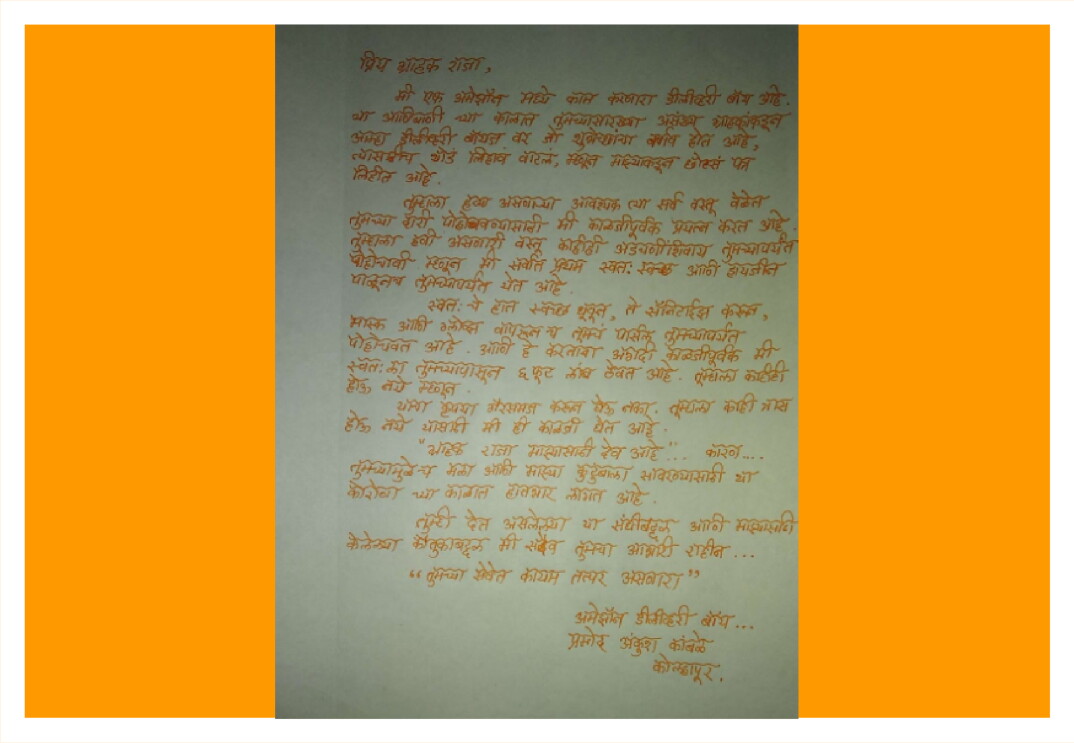 प्रिय ग्राहक राजा,
मी एक अमेझॉन मध्ये काम करणारा डीलीव्हरी बॉय आहे.
या आणिबाणी च्या काळात तुमच्यासारख्या असंख्य ग्राहकांकडून
आम्हा डीलीव्हरी बॉयज वर जो शुभेच्छांचा वर्षाव होत आहे,
त्यासाठीच थोडं लिहावं वाटलं, म्हणून माझ्याकडून छोटसं पत्र
लिहीत आहे.
तुम्हाला हव्या असणाऱ्या आवश्यक त्या सर्व वस्तू वेळेत
तुमच्या दारी पोहोचवण्यासाठी मी काळजीपूर्वक प्रयत्न करत आहे.
तुम्हाला हवी असणारी वस्तू काहीही अडचणींशिवाय तुमच्यापर्यंत
पोहोचावी म्हणून मी सर्वात प्रथम स्वतः स्वच्छ आणि हायजीन
पाळूनच तुमच्यापर्यंत येत आहे.
स्वतः चे हात स्वच्छ धुवून, ते सॅनिटाईझ करून,
मास्क आणि ग्लोव्हज वापरून च तुमचं पार्सल तुमच्यापर्यंत
पोहोचवत आहे. आणि हे करताना अगदी काळजीपूर्वक मी
स्वतः ला तुमच्यापासून ६ फूट लांब ठेवत आहे. तुम्हाला काहीही
होऊ नये म्हणून.
याचा कृपया गैरसमज करून घेऊ नका. तुम्हाला काही त्रास
होऊ नये यासाठी मी ही काळजी घेत आहे.
"ग्राहक राजा माझ्यासाठी देव आहे"... कारण....
तुमच्यामुळे च मला आणि माझ्या कुटुंबाला सावरण्यासाठी या
कोरोना च्या काळात हातभार लागत आहे.
तुम्ही देत असलेल्या या संधीबद्दल आणि माझ्यासाठी
केलेल्या कौतुकाबद्दल मी सदैव तुमचा आभारी राहीन...
"तुमच्या सेवेत कायम तत्पर असणारा"
अमेझॉन डीलीव्हरी बॉय...
अंकुश कांबळे
कोल्हापूर.